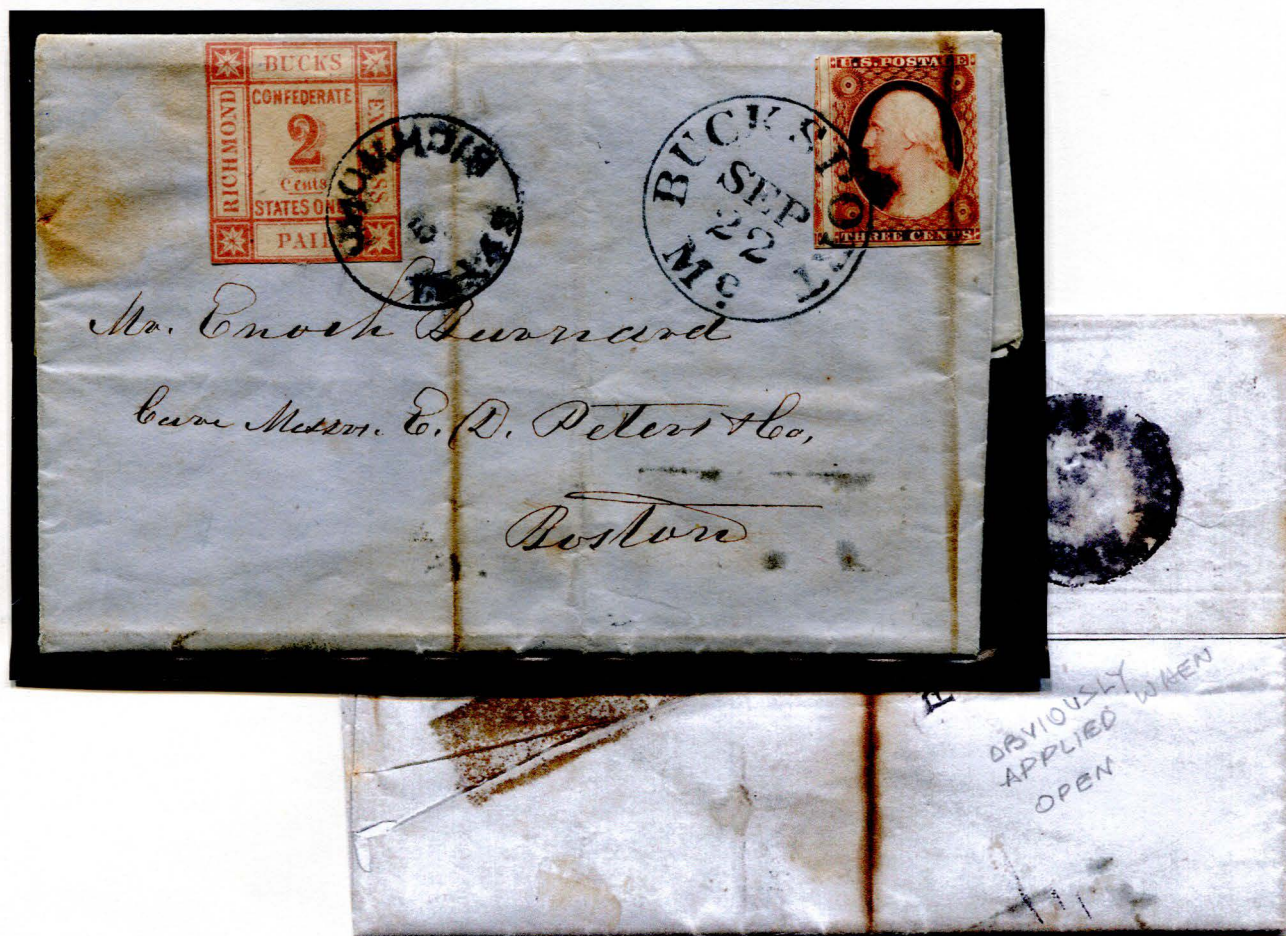 BUCKS
RICHMOND
CONFEDERATE
2
Cents
STATES ON
PAID
RICHMOND
BUCKSPORT
SEP
22
Me
U.S. POSTAGE
THREE CENTS
Mr. Enoch Burnard
Care Messrs. E. D. Peters & Co,
Boston
OBVIOUSLY
APPLIED WHEN
OPEN